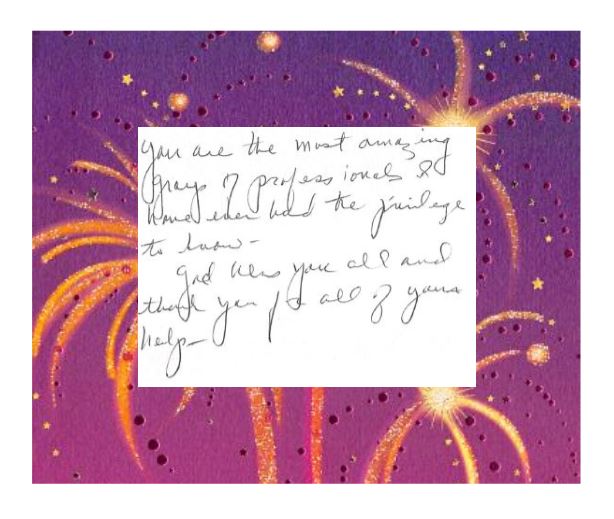 You are the most amazing
group of professionals I
have ever had the privilege
to know-
God bless you all and
thank you for all of your
help-